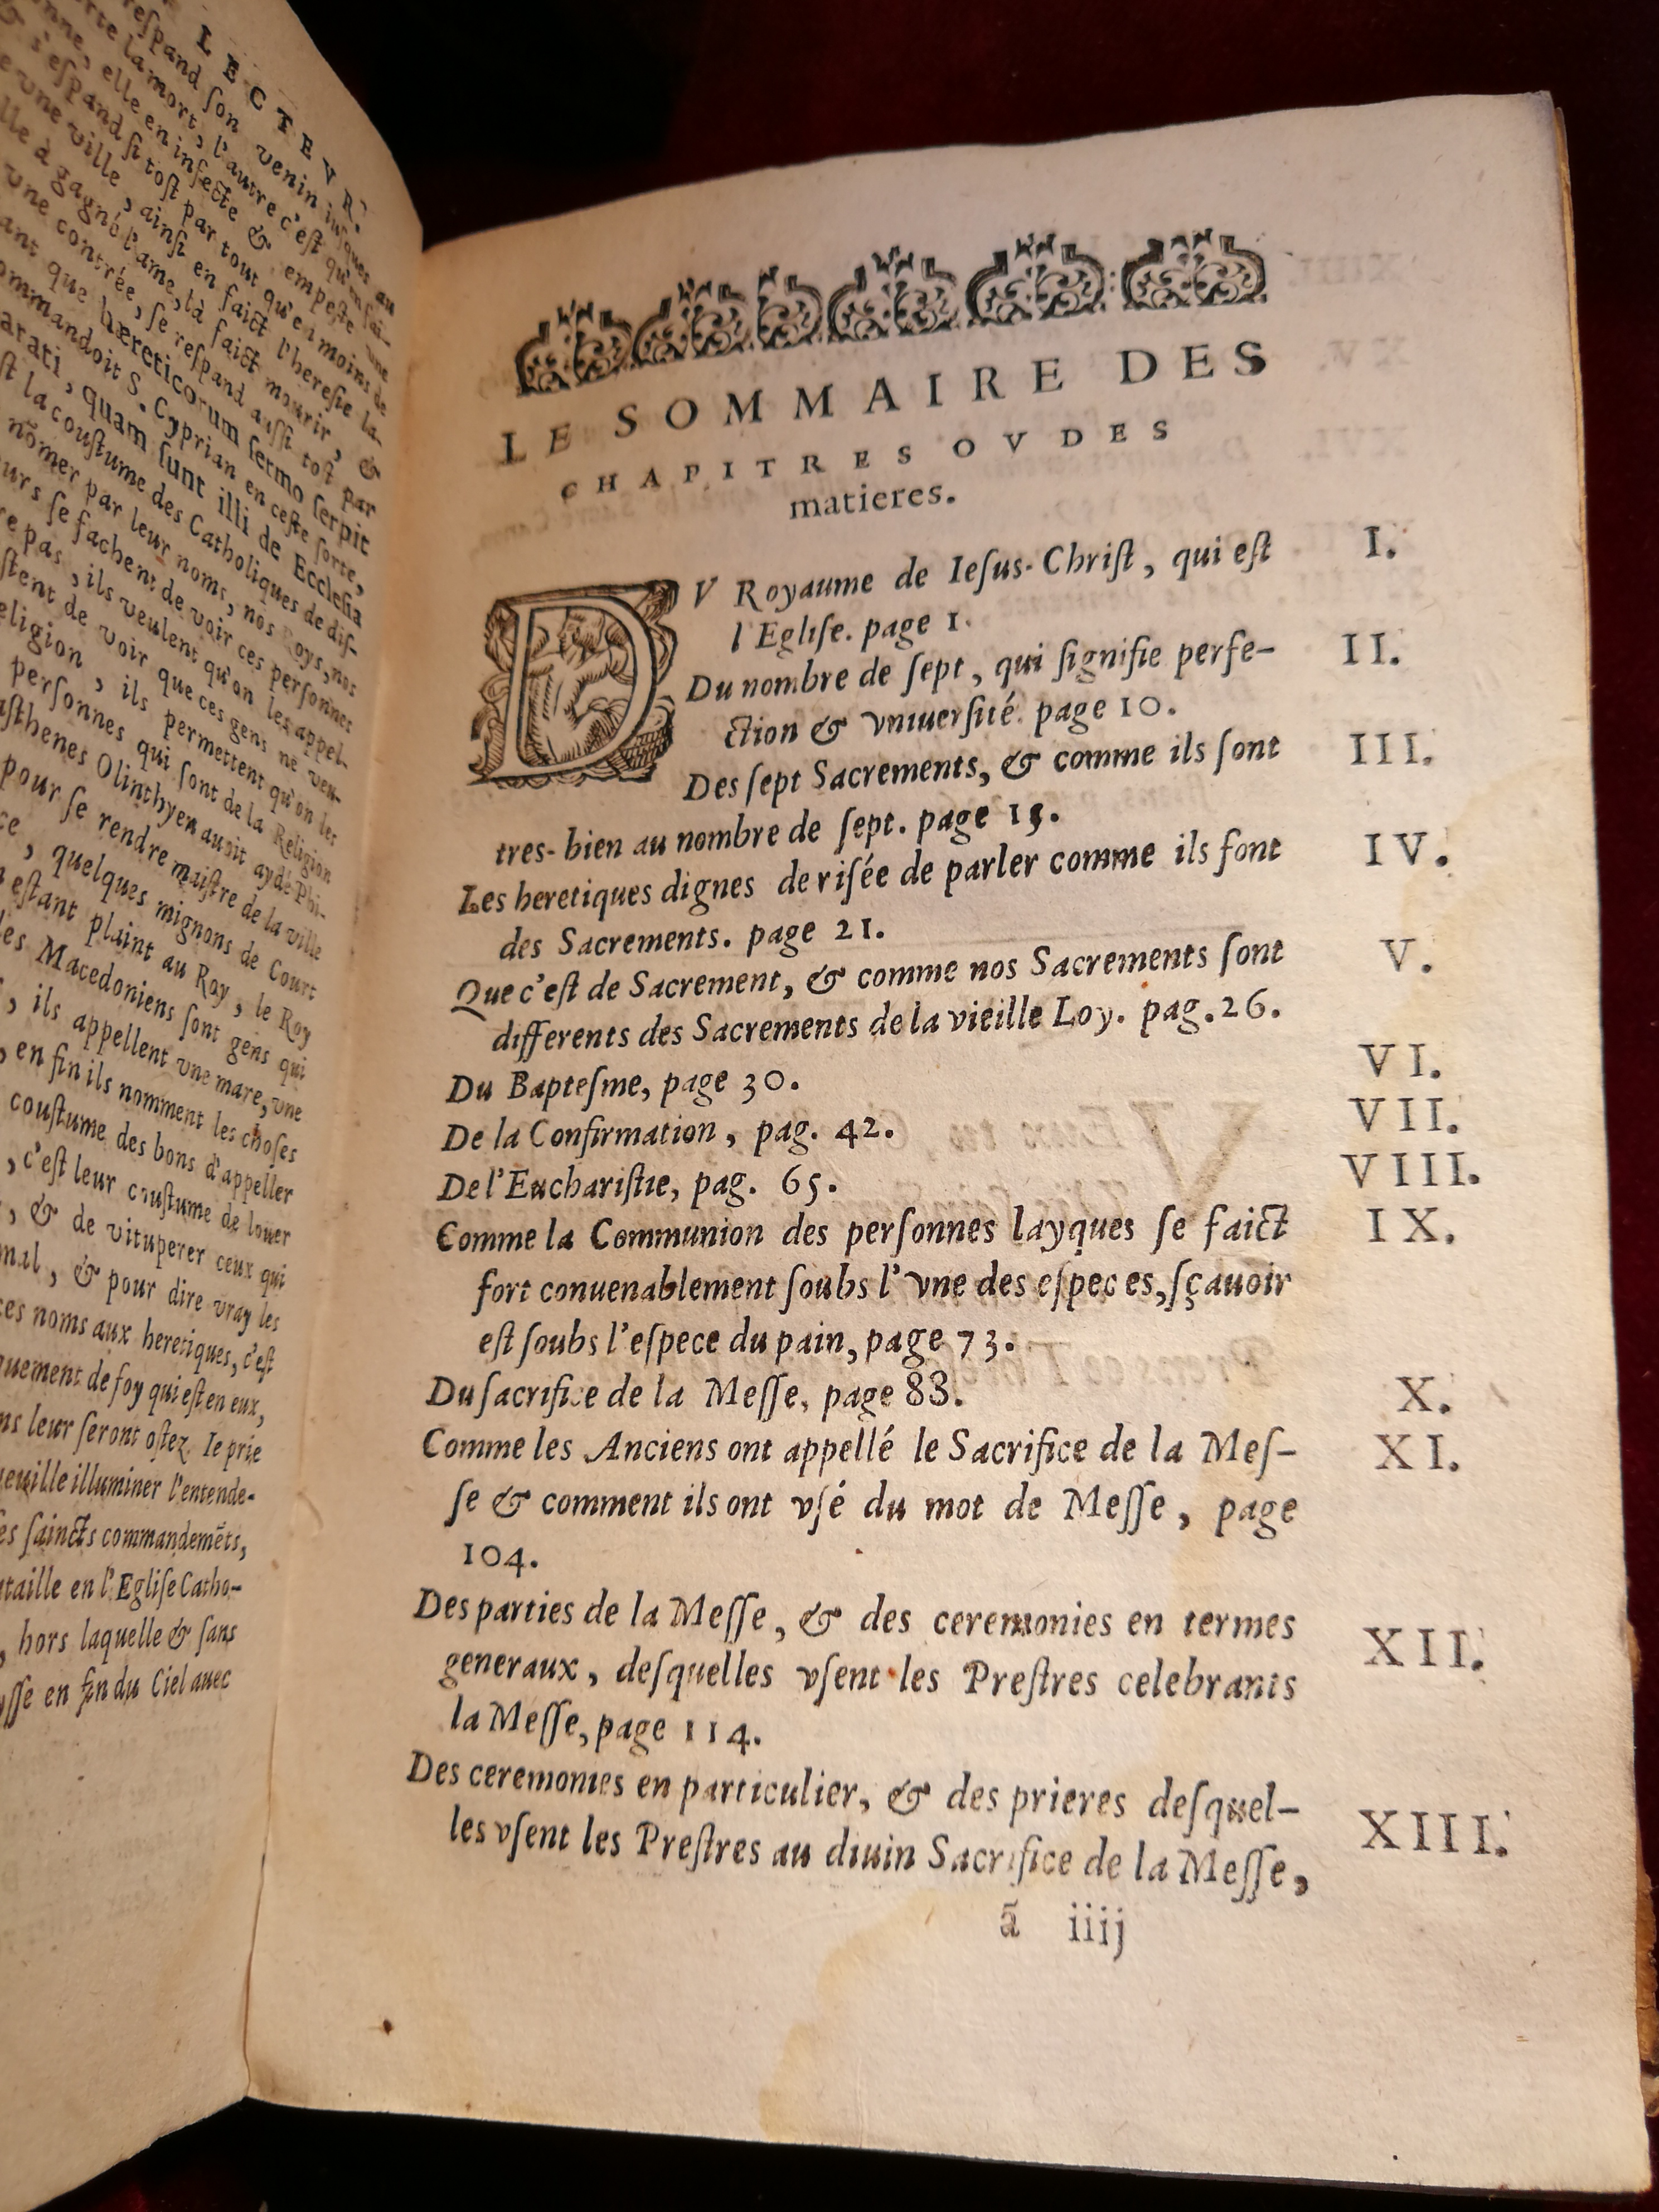 LECTEVR.
respand son venin iusques au
la mort, l'autre c'est qu'en fai-
elle en infecte & empeste vne
s'espand si tost par tout qu'en moins de
vne ville, ainsi en faict l'heresie la-
à gagné l'ame, là faict mourir, &
vne contrée, se respand aussi tost par
que hæreticorum sermo serpit
commandoit S. Cyprian en ceste sorte,
arati, quam sunt illi de Ecclesia
la coustume des Catholiques de dis-
nõmer par leur noms, nos Roys, nos
se fachent de voir ces personnes
pas, ils veulent qu'on les appel-
de voir que ces gens ne veu-
eligion, ils permettent qu'on les
personnes qui sont de la Religion
asthenes Olinthyen auoit aydé Phi-
pour se rendre maistre de la ville
ce, quelques mignons de Court
estant plaint au Roy, le Roy
les Macedoniens sont gens qui
, ils appellent vne mare, vne
, en fin ils nomment les choses
coustume des bons d'appeller
, c'est leur coustume de louer
, & de vituperer ceux qui
mal, & pour dire vray les
ces noms aux heretiques, c'est
quement de foy qui est en eux,
ns leur seront ostez. Ie prie
veuille illuminer l'entende-
es saincts commandemẽts,
taille en l'Eglise Catho-
, hors laquelle & sans
ysse en fin du Ciel auec
LE SOMMAIRE DES
CHAPITRES OV DES
matieres.
DV Royaume de Iesus-Christ, qui est I.
l'Eglise. page 1.
Du nombre de sept, qui signifie perfe- II.
ction & vniuersité. page 10.
Des sept Sacrements, & comme ils sont III.
tres-bien au nombre de sept. page 15.
Les heretiques dignes de risée de parler comme ils font IV.
des Sacrements. page 21.
Que c'est de Sacrement, & comme nos Sacrements sont V.
differents des Sacrements de la vieille Loy. pag. 26.
Du Baptesme, page 30. VI.
De la Confirmation, pag. 42. VII.
De l'Eucharistie, pag. 65. VIII.
Comme la Communion des personnes layques se faict IX.
fort conuenablement soubs l'vne des especes, sçauoir
est soubs l'espece du pain, page 73.
Du sacrifice de la Messe, page 83. X.
Comme les Anciens ont appellé le Sacrifice de la Mes- XI.
se & comment ils ont vsé du mot de Messe, page
104.
Des parties de la Messe, & des ceremonies en termes XII.
generaux, desquelles vsent les Prestres celebrants
la Messe, page 114.
Des ceremonies en particulier, & des prieres desquel- XIII.
les vsent les Prestres au diuin Sacrifice de la Messe,
ã iiij